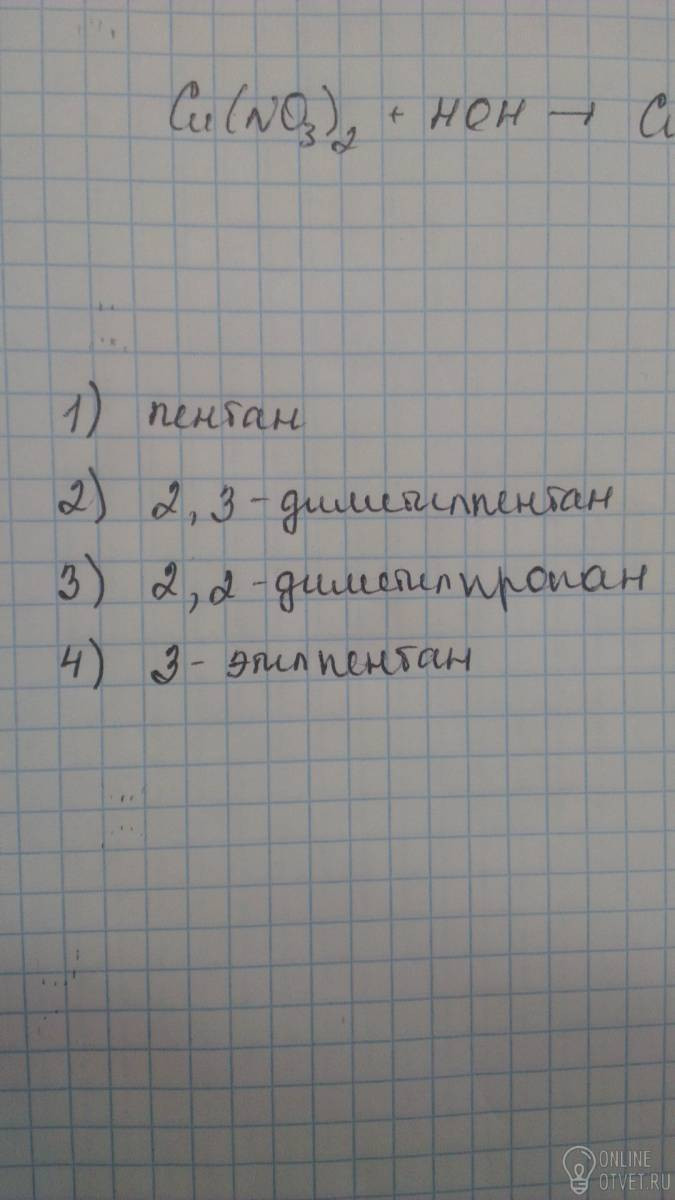 Cu(NO3)2 + HOH → C
1) пентан
2) 2,3-диметилпентан
3) 2,2-диметилпропан
4) 3-этилпентан
ONLINE
OTVET.RU